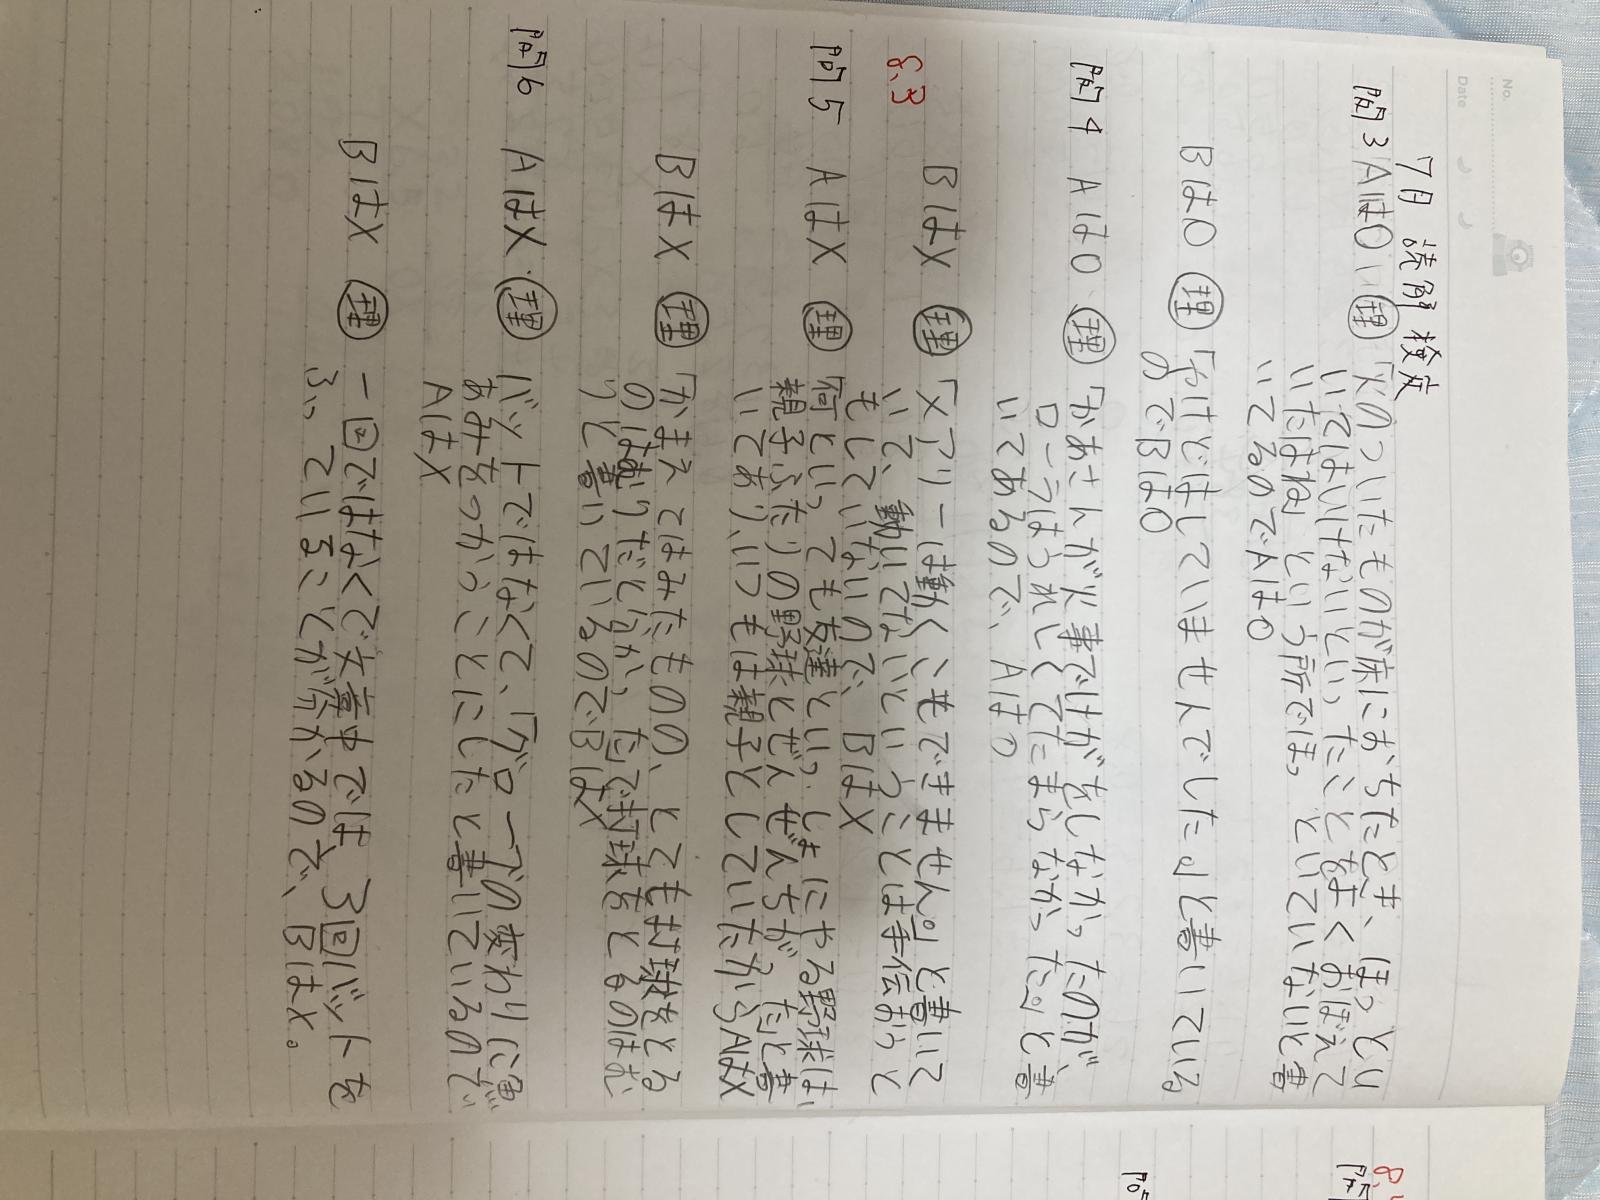 No.
Date
7月 読解 検定
問3 Aは○ 理 「火のついたものが床におちたとき、ほっとい
いてはいけないといったことをよくおぼえて
いたはね」という所でほっといていないと書
いてるのでAは○
Bは○ 理 「やけどはしていませんでした」と書いている
のでBは○
問4 Aは○ 理 「かあさんが火事でけがをしなかったのが、
ローラはうれしくてたまらなかった」と書
いてあるので、Aは○
8.3
Bは× 理 「メアリーは動くこもできません」と書いて
いて、動いてないということは手伝おうと
もしていないので、Bは×
問5 Aは× 理 「何といっても友達といっしょにやる野球は、
親子ふたりの野球とぜんぜんちがった」と書
いてあり、いつもは親子としていたからAは×
Bは× 理 「かまえてはみたものの、とても球をとる
のはむりだとらか、た」で球をとるのはむ
りと書いているのでBは×
問6 Aは× 理 バットではなくて、「グローブの変わりに魚
あみをつかうことにした」と書いているので
Aは×
Bは× 理 一回ではなくて文章中では3回バットを
ふっていることが分かるので、Bは×。
8.
問
問